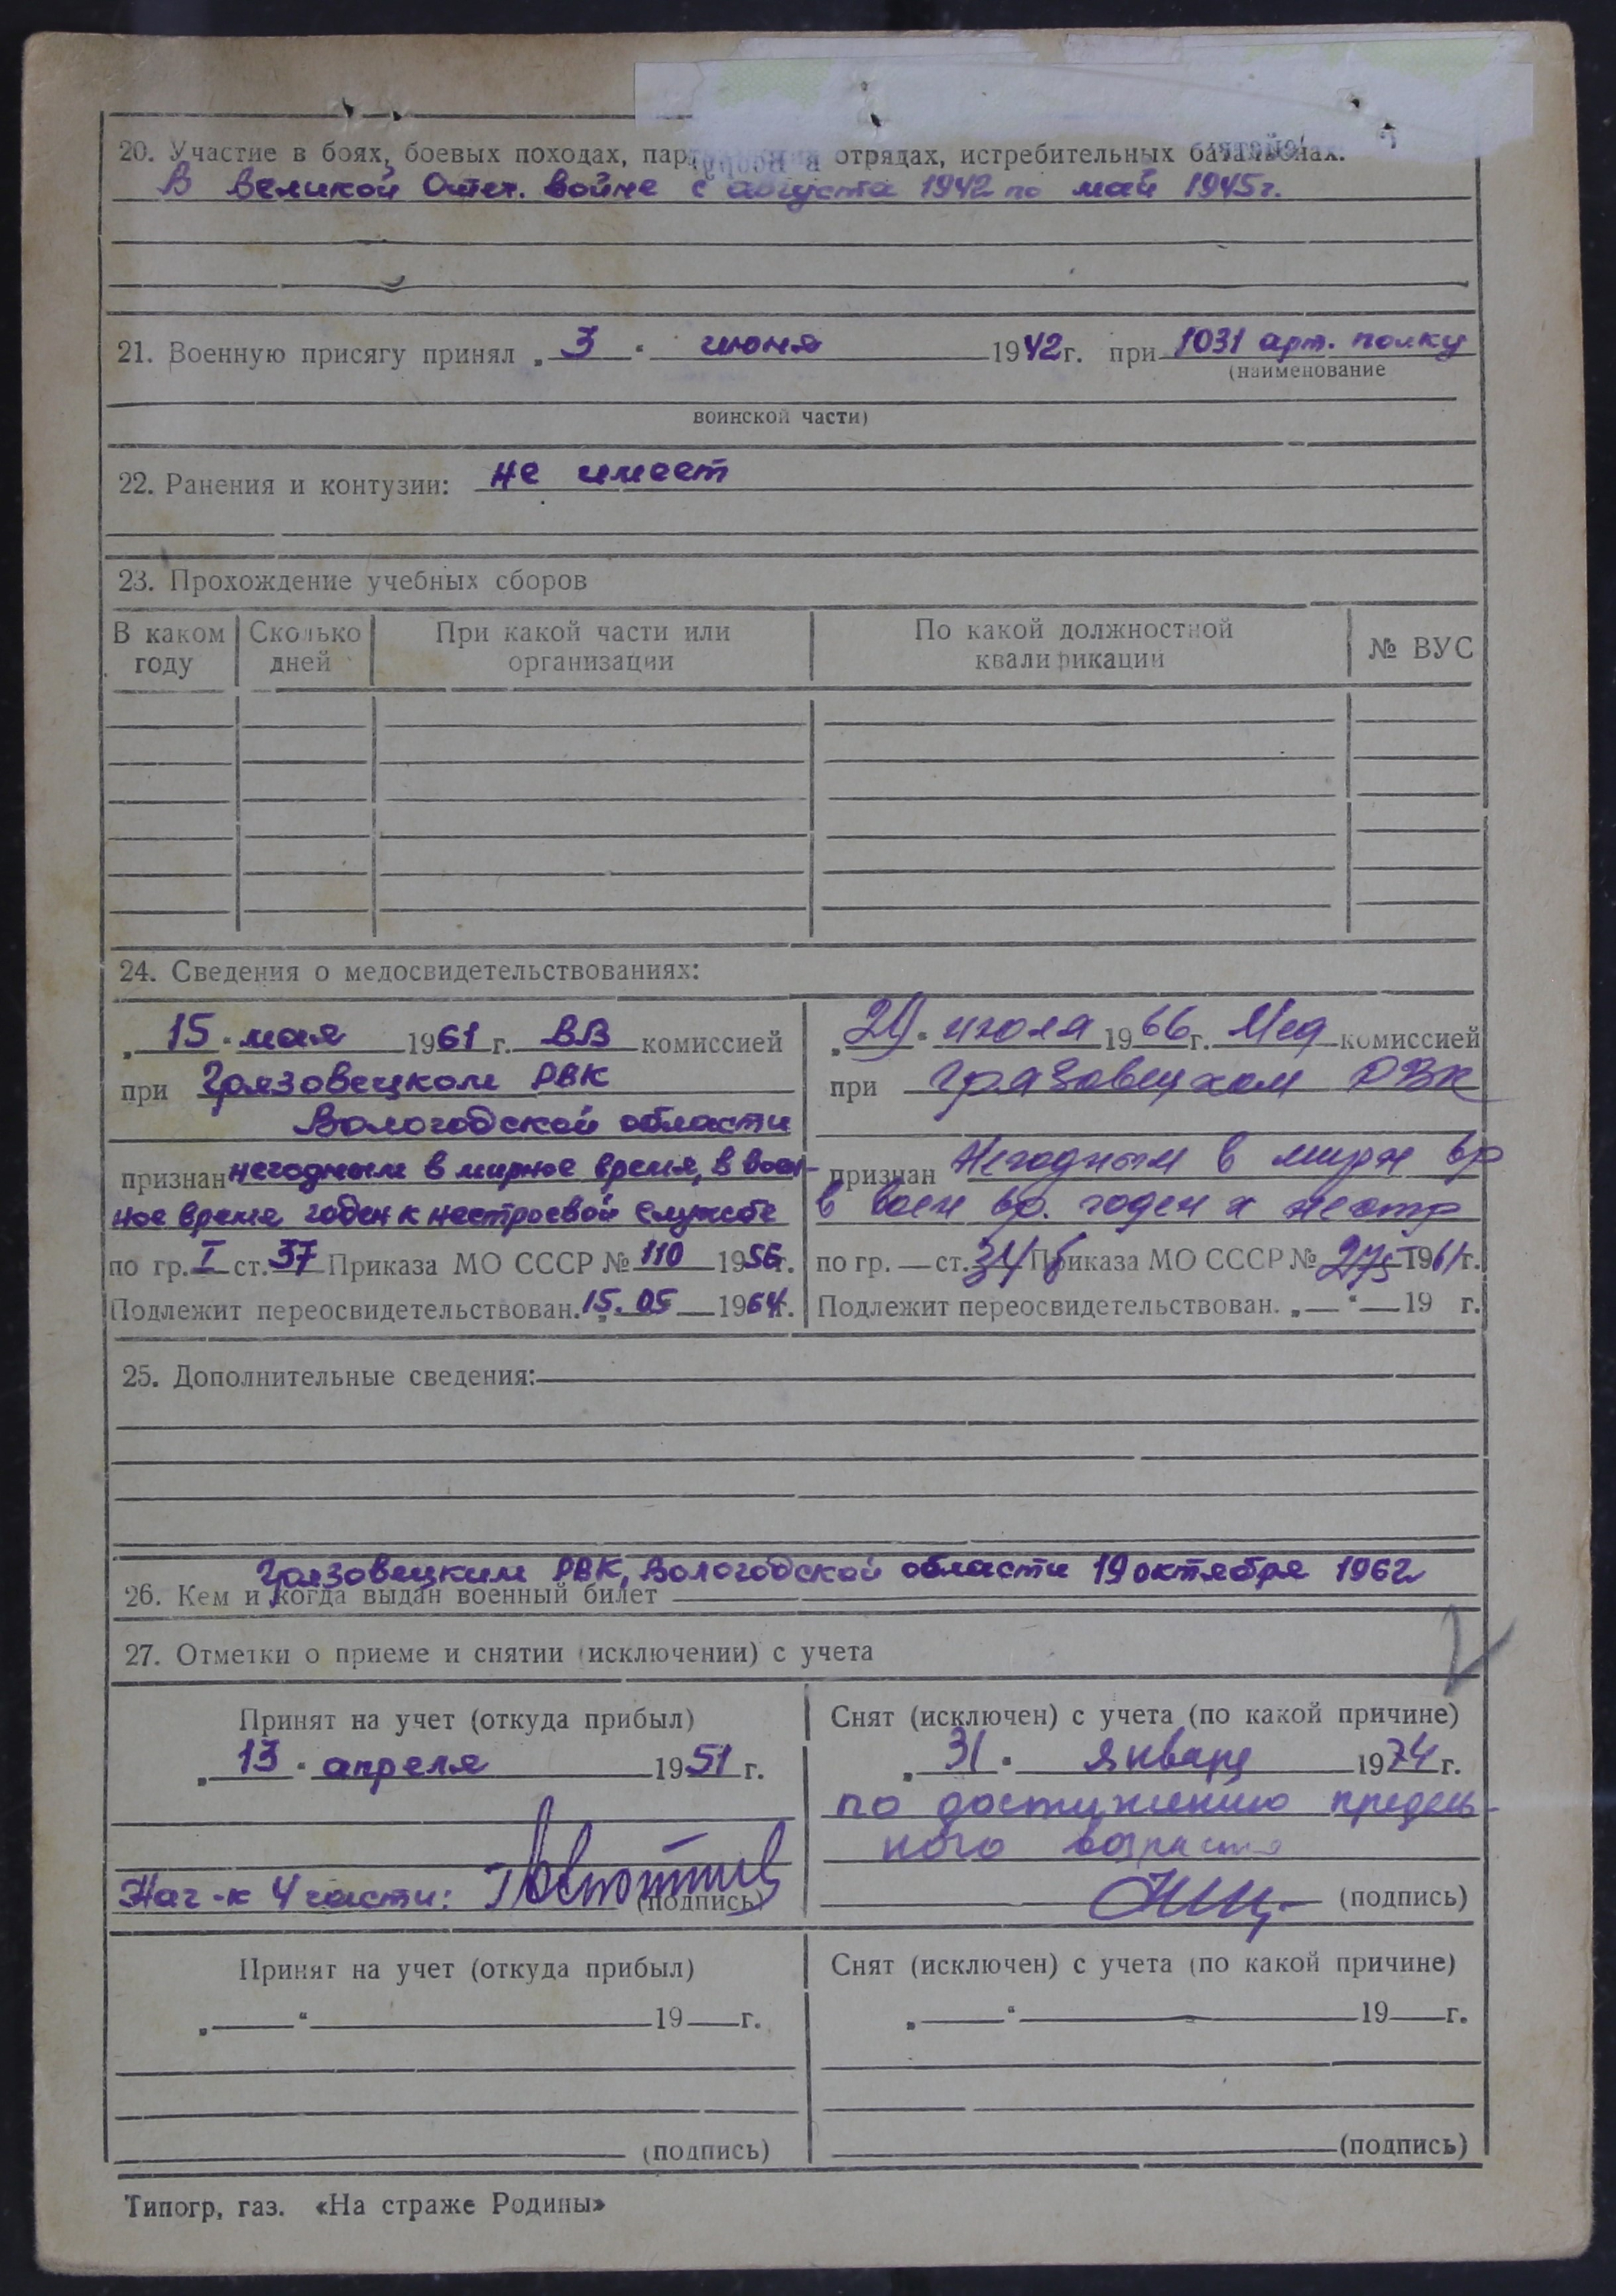 20. Участие в боях, боевых походах, отрядах, истребительных батальонах.
В Великой Отеч. войне с августа 1942 по май 1945 г.
21. Военную присягу принял „ 3 “ июня 1942 г. при 1031 арт. полку
(наименование
воинской части)
22. Ранения и контузии: не имеет
23. Прохождение учебных сборов
В каком году Сколько дней При какой части или организации По какой должностной квалификации № ВУС
24. Сведения о медосвидетельствованиях:
„ 15 “ мая 1961 г. ВВ комиссией
при Грязовецком РВК
Вологодской области
признан негодным в мирное время, в воен-
ное время годен к нестроевой службе
по гр. I ст. 37 Приказа МО СССР № 110 1956 г.
Подлежит переосвидетельствован. „ 15. 05 1964 г.
„ 29 “ июля 1966 г. Мед комиссией
при Грязовецком РВК
признан Негодным в мирн вр
в воен вр. годен к нестр
по гр. — ст. 34 б Приказа МО СССР № 275 1961 г.
Подлежит переосвидетельствован. „ — “ — 19 г.
25. Дополнительные сведения:
Грязовецким РВК, Вологодской области 19 октября 1962
26. Кем и когда выдан военный билет
27. Отметки о приеме и снятии (исключении) с учета
Принят на учет (откуда прибыл)
„ 13 “ апреля 1951 г.
Нач-к 4 части: (подпись)
Снят (исключен) с учета (по какой причине)
„ 31 “ январь 1974 г.
по достижению предель-
ного возраста
(подпись)
Принят на учет (откуда прибыл)
„ “ 19 г.
(подпись)
Снят (исключен) с учета (по какой причине)
„ “ 19 г.
(подпись)
Типогр, газ. «На страже Родины»